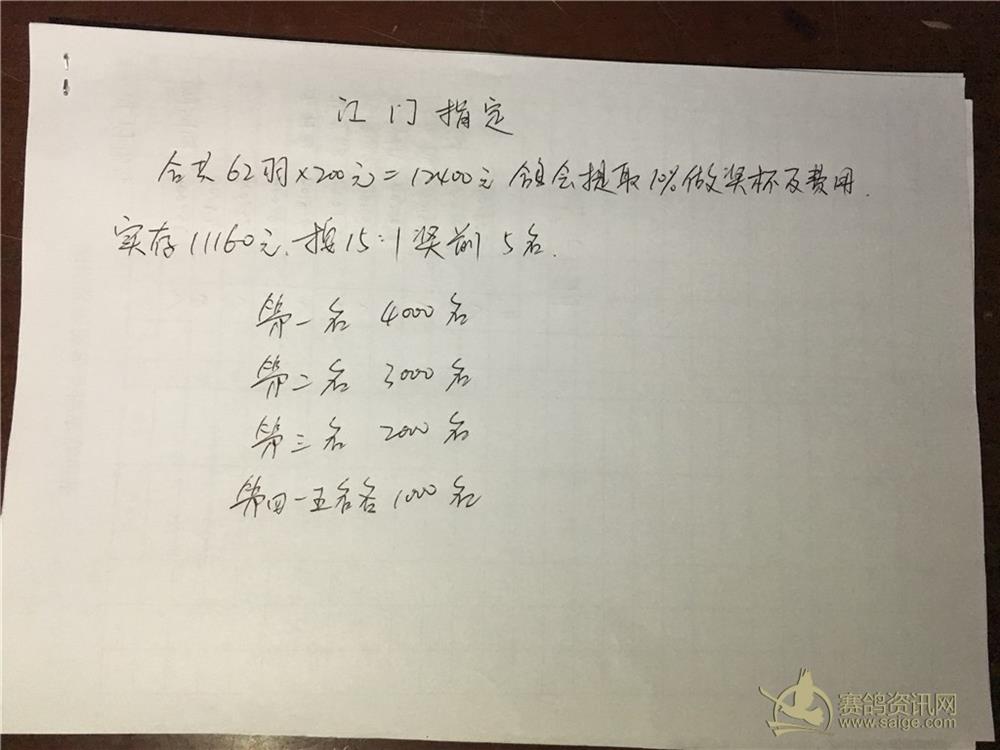 江门指定
合共62羽×200元=12400元 鸽会提取10%做奖杯及费用.
实存11160元.按15:1奖前5名.
第一名 4000名
第二名 3000名
第三名 2000名
第四-五名各1000名
赛鸽资讯网
www.saige.com